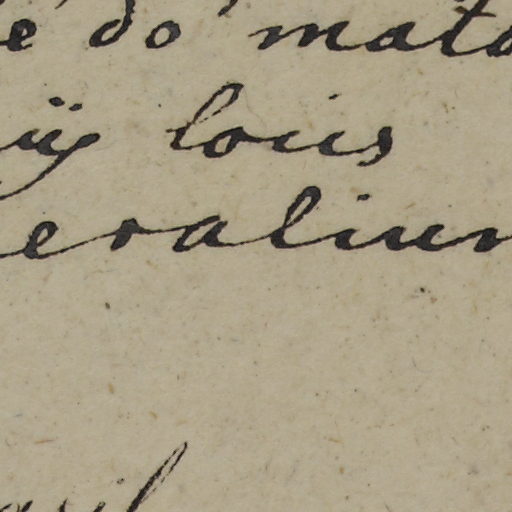 e do mato
ÿ lois
eralium